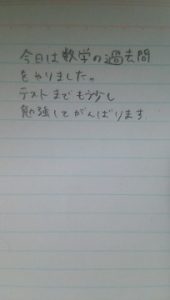 今日は数学の過去問
をやりました。
テストまでもう少し
勉強してがんばります